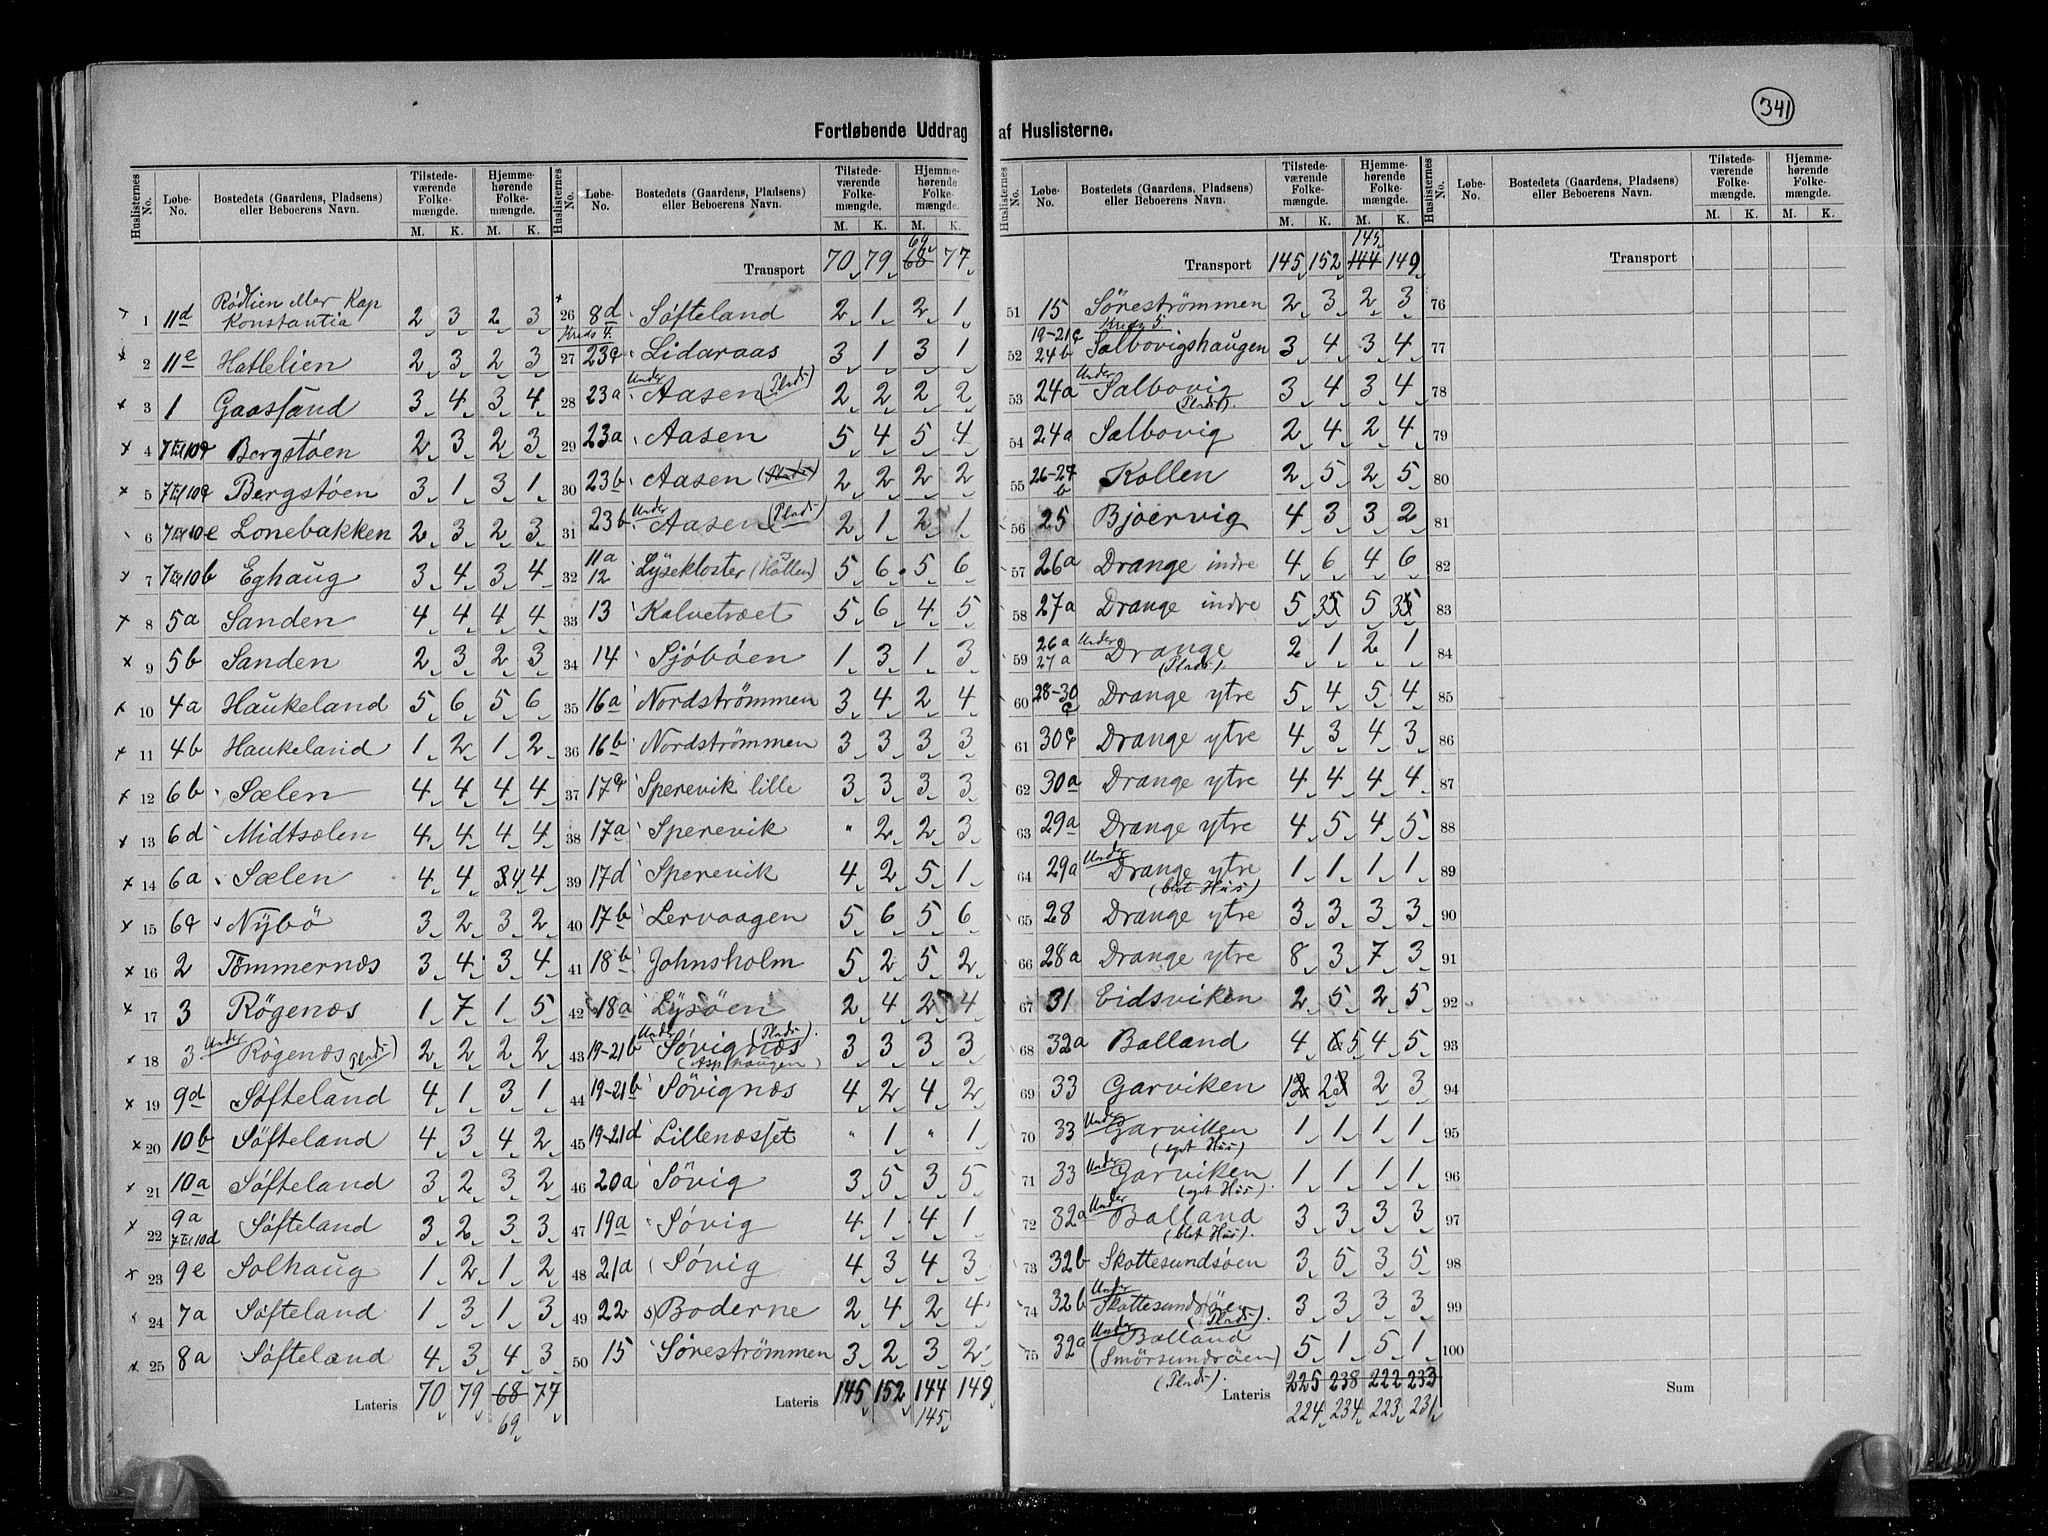 341
Fortløbende Uddrag af Huslisterne.
Huslisternes No. Løbe-No. Bostedets (Gaardens, Pladsens) eller Beboerens Navn. Tilstedeværende Folkemængde. M. K. Hjemmehørende Folkemængde. M. K.
1 11d Rødlien eller Kap Konstantia 2 3 2 3
2 11e Hattelien 2 3 2 3
3 1 Gaassand 3 4 3 4
4 Bergstøen 2 3 2 3
5 Bergstøen 3 1 3 1
6 Lonebakken 2 3 2 3
7 Eghaug 3 4 3 4
8 5a Sanden 4 4 4 4
9 5b Sanden 2 3 2 3
10 4a Haukeland 5 6 5 6
11 4b Haukeland 1 2 1 2
12 6b Sælen 4 4 4 4
13 6d Midtsælen 4 4 4 4
14 6a Sælen 4 4 3 4 4
15 6c Nybö 3 2 3 2
16 2 Tömmernæs 3 4 3 4
17 3 Rögenæs 1 7 1 5
18 3 Under Rögenæs (Plads) 2 2 2 2
19 9d Søfteland 4 1 3 1
20 10b Søfteland 4 3 4 2
21 10a Søfteland 3 2 3 2
22 9a 7til10d Søfteland 3 2 3 3
23 9e Solhaug 1 2 1 2
24 7a Søfteland 1 3 1 3
25 8a Søfteland 4 3 4 3
Lateris 70 79 68 77
69
Huslisternes No. Løbe-No. Bostedets (Gaardens, Pladsens) eller Beboerens Navn. Tilstedeværende Folkemængde. M. K. Hjemmehørende Folkemængde. M. K.
69
Transport 70 79 68 77
26 8d Søfteland 2 1 2 1
Kreds 4.
27 23c Lidaraas 3 1 3 1
28 23a Under Aasen (Plads) 2 2 2 2
29 23a Aasen 5 4 5 4
30 23b Aasen (Plads) 2 2 2 2
31 23b Under Aasen (Plads) 2 1 2 1
32 11a 12 Lysekloster (Hollen) 5 6 5 6
33 13 Kalvetræet 5 6 4 5
34 14 Sjöbøen 1 3 1 3
35 16a Nordströmmen 3 4 2 4
36 16b Nordströmmen 3 3 3 3
37 17c Sperevik lille 3 3 3 3
38 17a Sperevik " 2 2 3
39 17d Sperevik 4 2 5 1
40 17b Lervaagen 5 6 5 6
41 18b Johnsholm 5 2 5 2
42 18a Lysøen 2 4 2 4
43 19-21b Under Søvignæs (Plads). 3 3 3 3
(Asphaugen)
44 19-21b Søvignæs 4 2 4 2
45 19-21d Lillenæsset " 1 " 1
46 20a Sövig 3 5 3 5
47 19a Søvig 4 1 4 1
48 21a Søvig 4 3 4 3
49 22 Boderne 2 4 2 4
50 15 Søreströmmen 3 2 3 2
Lateris 145 152 144 149
145
Huslisternes No. Løbe-No. Bostedets (Gaardens, Pladsens) eller Beboerens Navn. Tilstedeværende Folkemængde. M. K. Hjemmehørende Folkemængde. M. K.
145
Transport 145 152 144 149
51 15 Søreströmmen 2 3 2 3
Kreds 5.
52 19-21c 24b Salbovigshaugen 3 4 3 4
53 24a Under Salbovig 3 4 3 4
(Plads).
54 24a Salbovig 2 4 2 4
55 26-27b Kollen 2 5 2 5
56 25 Bjørvig 4 3 3 2
57 26a Drange indre 4 6 4 6
58 27a Drange indre 5 3 5 3
59 26a 27a Under Drange 2 1 2 1
(Plads).
60 28-30c Drange ytre 5 4 5 4
61 30c Drange ytre 4 3 4 3
62 30a Drange ytre 4 4 4 4
63 29a Drange ytre 4 5 4 5
64 29a Under Drange ytre 1 1 1 1
(blot Hus)
65 28 Drange ytre 3 3 3 3
66 28a Drange ytre 8 3 7 3
67 31 Eidsviken 2 5 2 5
68 32a Balland 4 5 4 5
69 33 Garviken 1 2 2 3
70 33 Under Garviken 1 1 1 1
(eget Hus)
71 33 Under Garviken 1 1 1 1
(eget Hus).
72 32a Under Balland 3 3 3 3
(blot Hus).
73 32b Skottesundsøen 3 5 3 5
74 32b Under Skottesundsøen 3 3 3 3
(Plads).
75 32a Under Balland 5 1 5 1
(Smörsundsøen)
(Plads).
Lateris 225 238 222 233
224 234 223 231
Huslisternes No. Løbe-No. Bostedets (Gaardens, Pladsens) eller Beboerens Navn. Tilstedeværende Folkemængde. M. K. Hjemmehørende Folkemængde. M. K.
Transport
76
77
78
79
80
81
82
83
84
85
86
87
88
89
90
91
92
93
94
95
96
97
98
99
100
Sum